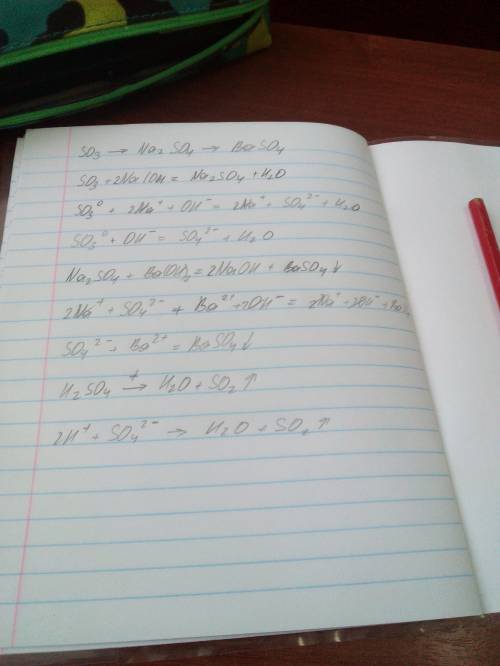 SO₃ → Na₂SO₄ → BaSO₄
SO₃ + 2NaOH = Na₂SO₄ + H₂O
SO₃⁰ + 2Na⁺ + OH⁻ = 2Na⁺ + SO₄²⁻ + H₂O
SO₃⁰ + OH⁻ = SO₄²⁻ + H₂O
Na₂SO₄ + Ba(OH)₂ = 2NaOH + BaSO₄↓
2Na⁺ + SO₄²⁻ + Ba²⁺ + 2OH⁻ = 2Na⁺ + 2OH⁻ + Ba
SO₄²⁻ + Ba²⁺ = BaSO₄↓
H₂SO₄ → H₂O + SO₂↑
2H⁺ + SO₄²⁻ → H₂O + SO₂↑